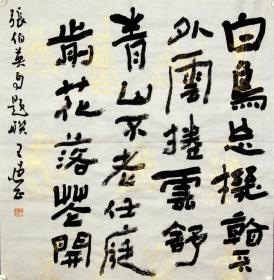 白鳥忘機看天
外雲捲雲舒
青山不老任庭
前花落花開
張伯英句題聯